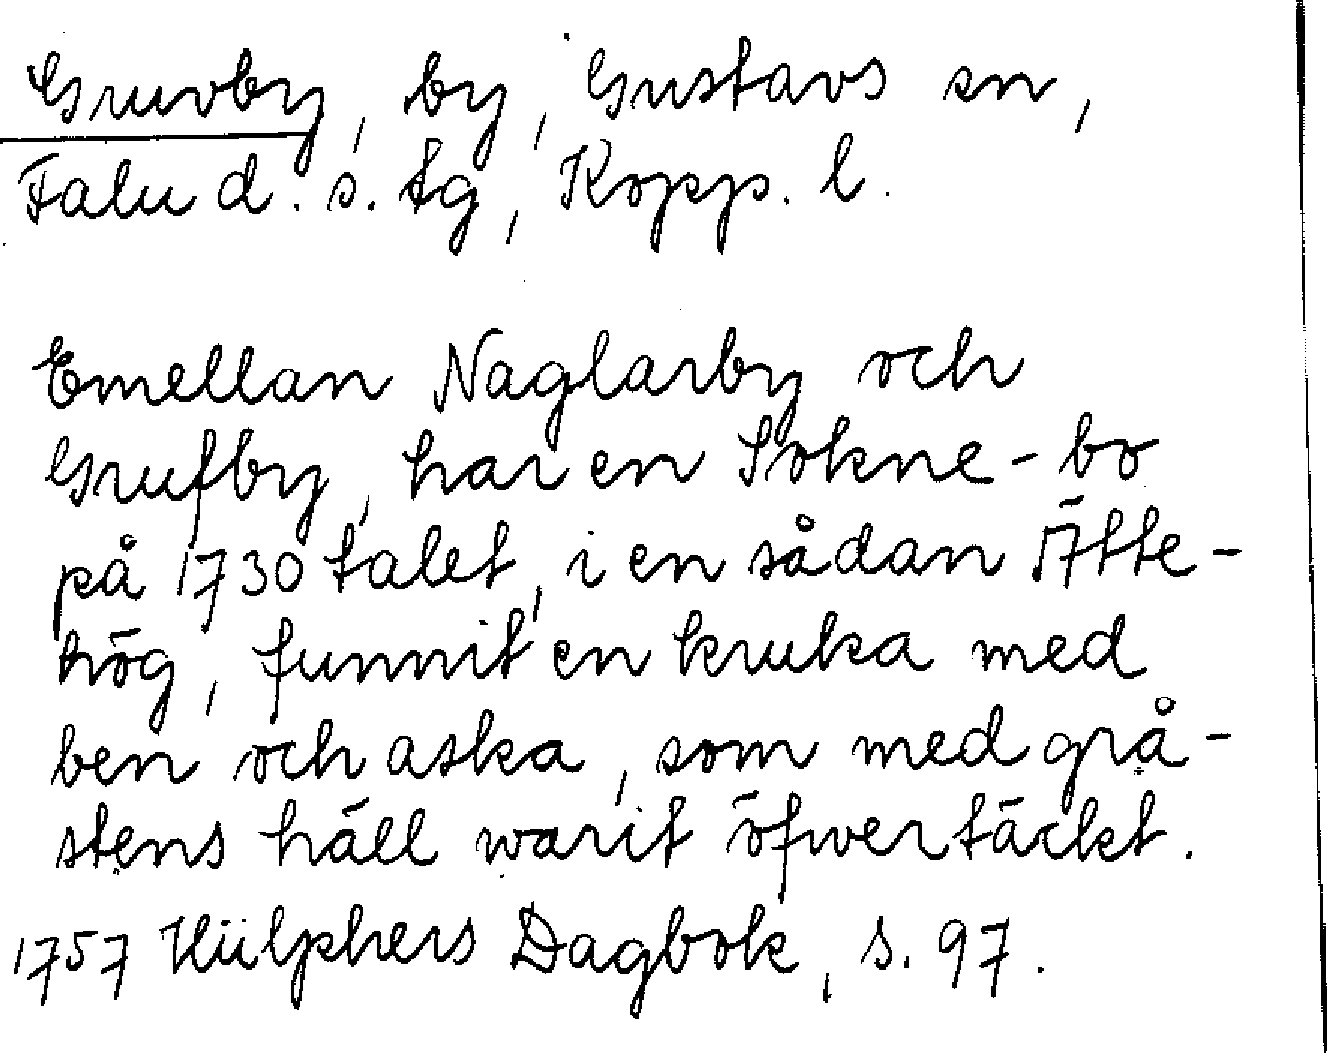 Gruvby, by, Gustavs sn,
Falu d. s. tg, Kopp. l.
Emellan Naglarby och
Grufby, har en Sokne-bo
på 1730 talet, i en sådan Ätte-
hög, funnit en kruka med
ben och aska, som med grå-
stens häll warit öfwertäckt.
1757 Hülphers Dagbok, s. 97.